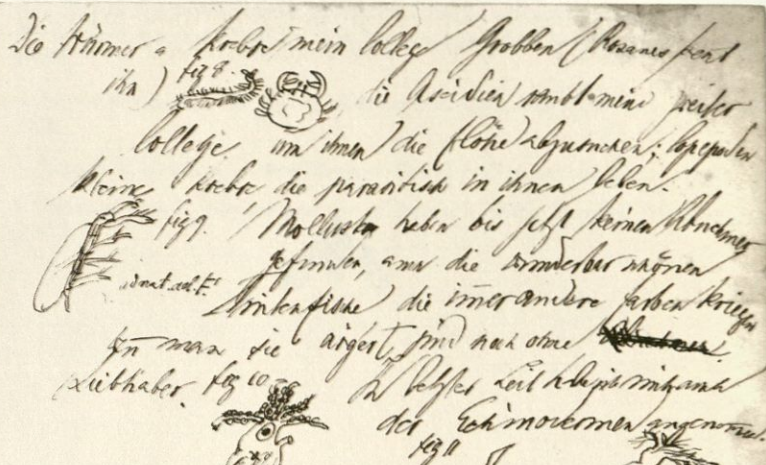 Die Würmer u Krebse mein College Grobben (Rosanes kent
ihn) fig 8. die Ascidien sam̄elt mein zweiter
College um ihnen die Flöhe abzusuchen; Copepoden
kleine Krebse, die parasitisch in ihnen leben.
fig 9. Mollusken haben bis jetzt keinen Abnehmer
gefunden, auch die wunderbar schönen
Tintenfische die im̄er andere Farben kriegen
man sie ärgert, sind noch ohne
Liebhaber. fig 10 In letzter Zeit
der Echinodermen angenom̄en.
fig 11